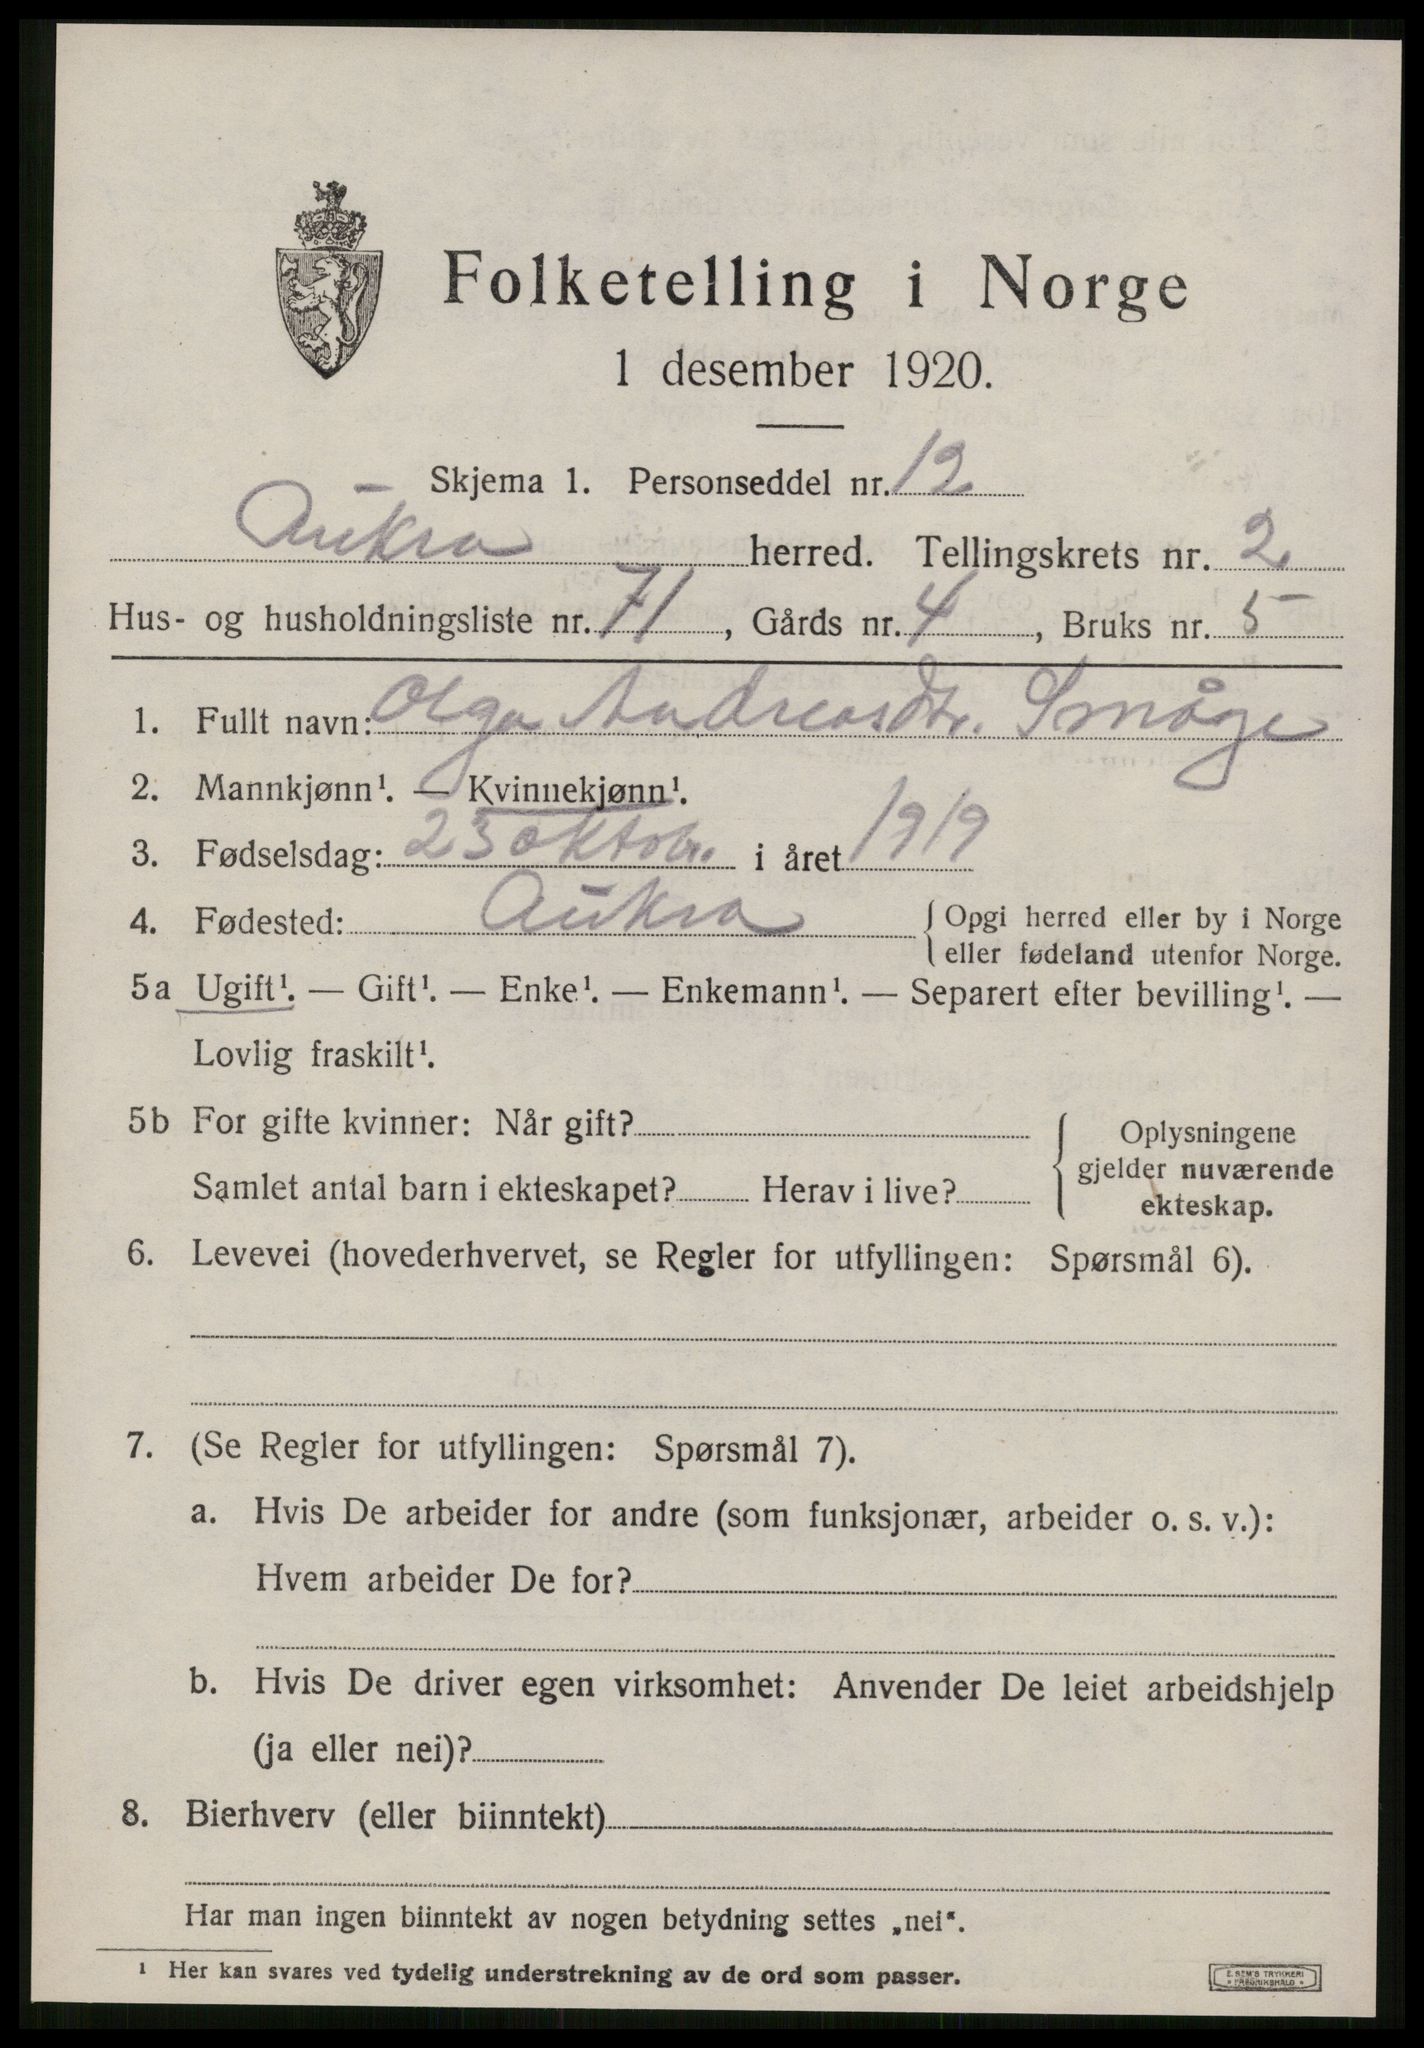 Folketelling i Norge
1 desember 1920.
Skjema 1. Personseddel nr. 12
Aukra herred. Tellingskrets nr. 2.
Hus- og husholdningsliste nr. 71, Gårds nr. 4, Bruks nr. 5
1. Fullt navn: Olga Andreasdtr. Småge
2. Mannkjønn¹. — Kvinnekjønn¹.
3. Fødselsdag: 23 oktobr. i året 1919
4. Fødested: Aukra { Opgi herred eller by i Norge
eller fødeland utenfor Norge.
5a Ugift¹. — Gift¹. — Enke¹. — Enkemann¹. — Separert efter bevilling¹. —
Lovlig fraskilt¹.
5b For gifte kvinner: Når gift?
Samlet antal barn i ekteskapet? Herav i live?
{ Oplysningene
gjelder nuværende
ekteskap.
6. Levevei (hovederhvervet, se Regler for utfyllingen: Spørsmål 6).
7. (Se Regler for utfyllingen: Spørsmål 7).
a. Hvis De arbeider for andre (som funksjonær, arbeider o. s. v.):
Hvem arbeider De for?
b. Hvis De driver egen virksomhet: Anvender De leiet arbeidshjelp
(ja eller nei)?
8. Bierhverv (eller biinntekt)
Har man ingen biinntekt av nogen betydning settes „nei".
¹ Her kan svares ved tydelig understrekning av de ord som passer.
E. SEM'S TRYKKERI
* FREDRIKSHALD *